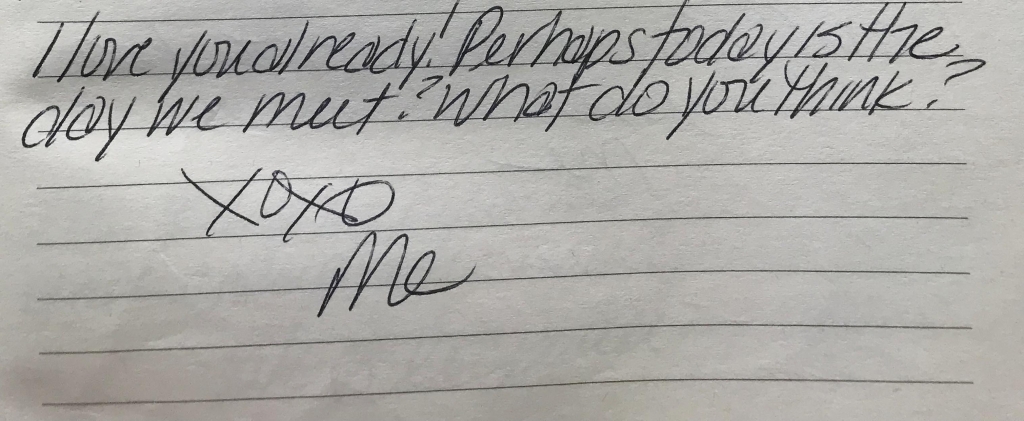 I love you already! Perhaps today is the
day we meet!? What do you think?
XOXO
Me